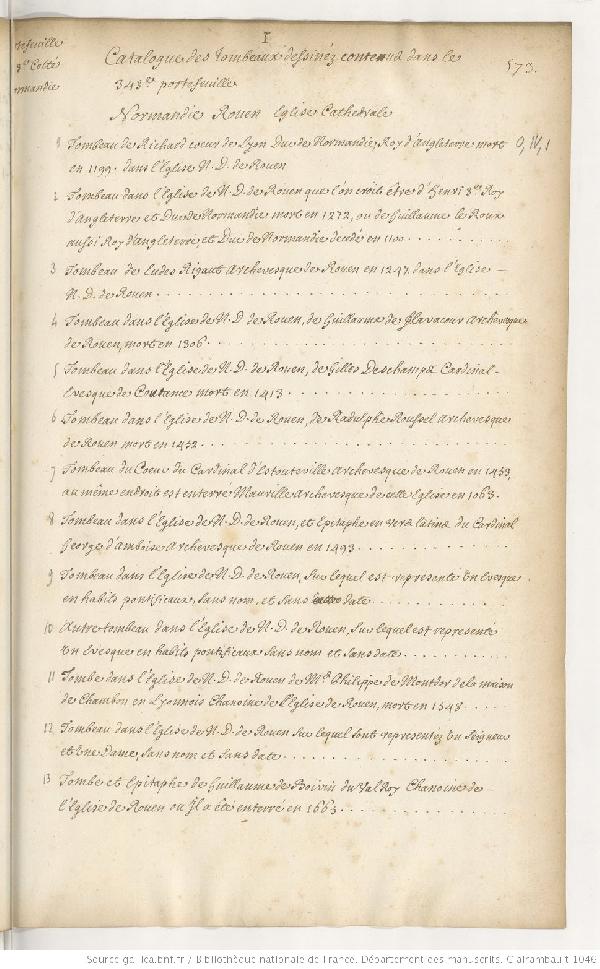 I
Catalogue des tombeaux dessinéz contenus dans le
343me portefeuille
573.
Normandie Rouen Eglise Cathedrale
1 Tombeau de Richard coeur de Lyon Duc de Normandie, Roy d'Angleterre mort
en 1199. dans l'Eglise N. D. de Rouen
O, IV, 1
2 Tombeau dans l'Eglise de N. D. de Rouen que l'on croit être d'Henri 3me Roy
d'Angleterre et Duc de Normandie mort en 1272, ou de Guillaume le Roux
aussi Roy d'Angleterre, et Duc de Normandie decédé en 1100
3 Tombeau de Eudes Rigaut Archevesque de Rouen en 1247. dans l'Eglise
N. D. de Rouen
4 Tombeau dans l'Eglise de N. D. de Rouen, de Guillaume de Flavacour Archevesque
de Rouen, mort en 1306
5 Tombeau dans l'Eglise de N. D. de Rouen, de Gilles Deschamps Cardinal
Evesque de Coutance mort en 1413
6 Tombeau dans l'Eglise de N. D. de Rouen, de Radulphe Roussel Archevesque
de Rouen mort en 1452
7 Tombeau du Coeur du Cardinal d'Estouteville Archevesque de Rouen en 1453,
au même endroit est enterré Mauville Archevesque de celle Eglise en 1063
8 Tombeau dans l'Eglise de N. D. de Rouen, et Epitaphe en vers latins du Cardinal
George d'Amboise Archevesque de Rouen en 1493
9 Tombeau dans l'Eglise de N. D. de Rouen, sur lequel est representé Un Evesque
en habits pontificaux, sans nom, et sans date
10 Autre tombeau dans l'Eglise de N. D. de Rouen, sur lequel est representé
Un Evesque en habits pontificaux sans nom et sans date
11 Tombe dans l'Eglise de N. D. de Rouen de Mre Philippe de Montdor de la maison
de Chambon en Lyonnois Chanoine de l'Eglise de Rouen, mort en 1548
12 Tombeau dans l'Eglise de N. D. de Rouen sur lequel sont representéz Un Seigneur
et Une Dame, sans nom et sans date
13 Tombe et Epitaphe de Guillaume de Boivin du Val Roy Chanoine de
l'Eglise de Rouen ou Il a été enterré en 1663
Source gallica.bnf.fr / Bibliothèque nationale de France. Département des manuscrits. Clairambault 1046